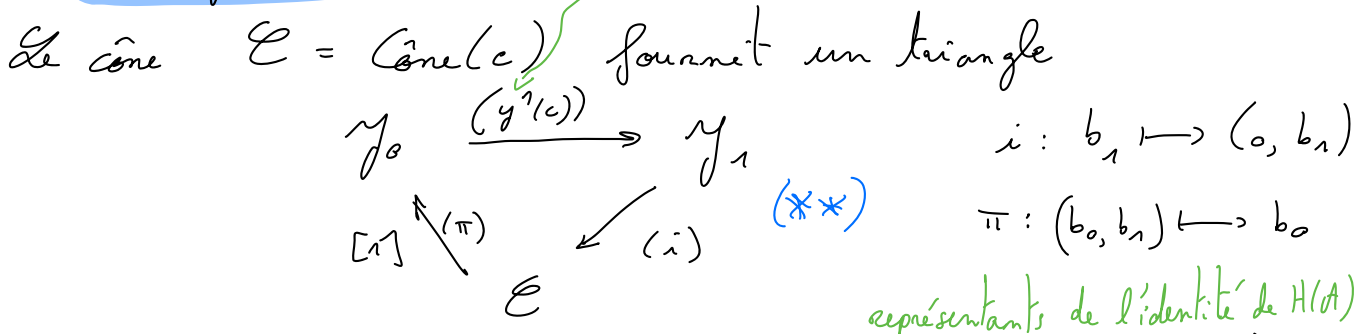 Le cône 𝒞 = Cône(c) fournit un triangle
𝒴₀ (y¹(c)) 𝒴₁ i : b₁ ⟼ (0, b₁)
(**)
[1] (π) (i) π : (b₀, b₁) ⟼ b₀
𝒞
représentants de l'identité de H(A)